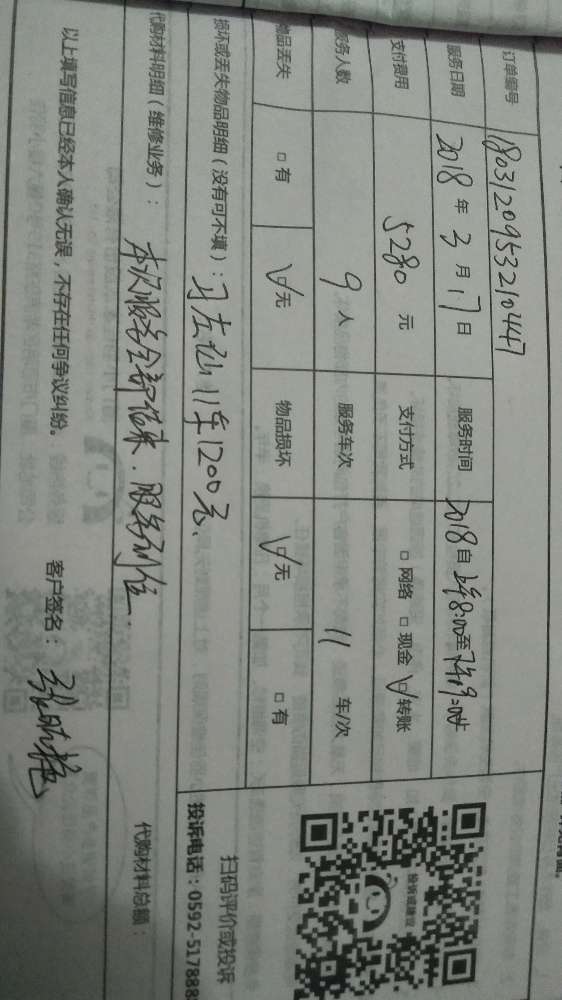 订单编号 1803120953210447
服务日期 2018年3月17日 服务时间 2018自 8:00至 9:00
支付费用 5280元 支付方式 □网络 □现金 ☑转账
服务人数 9人 服务车次 11 车/次
物品丢失 □有 ☑无 物品损坏 ☑无 □有
损坏或丢失物品明细(没有可不填): 11车1200元.
扫码评价或投诉
投诉电话:0592-517888
投诉或建议
代购材料明细(维修业务): 本次服务全部结束.服务到位.
代购材料总额:
以上填写信息已经本人确认无误,不存在任何争议纠纷。 客户签名:张